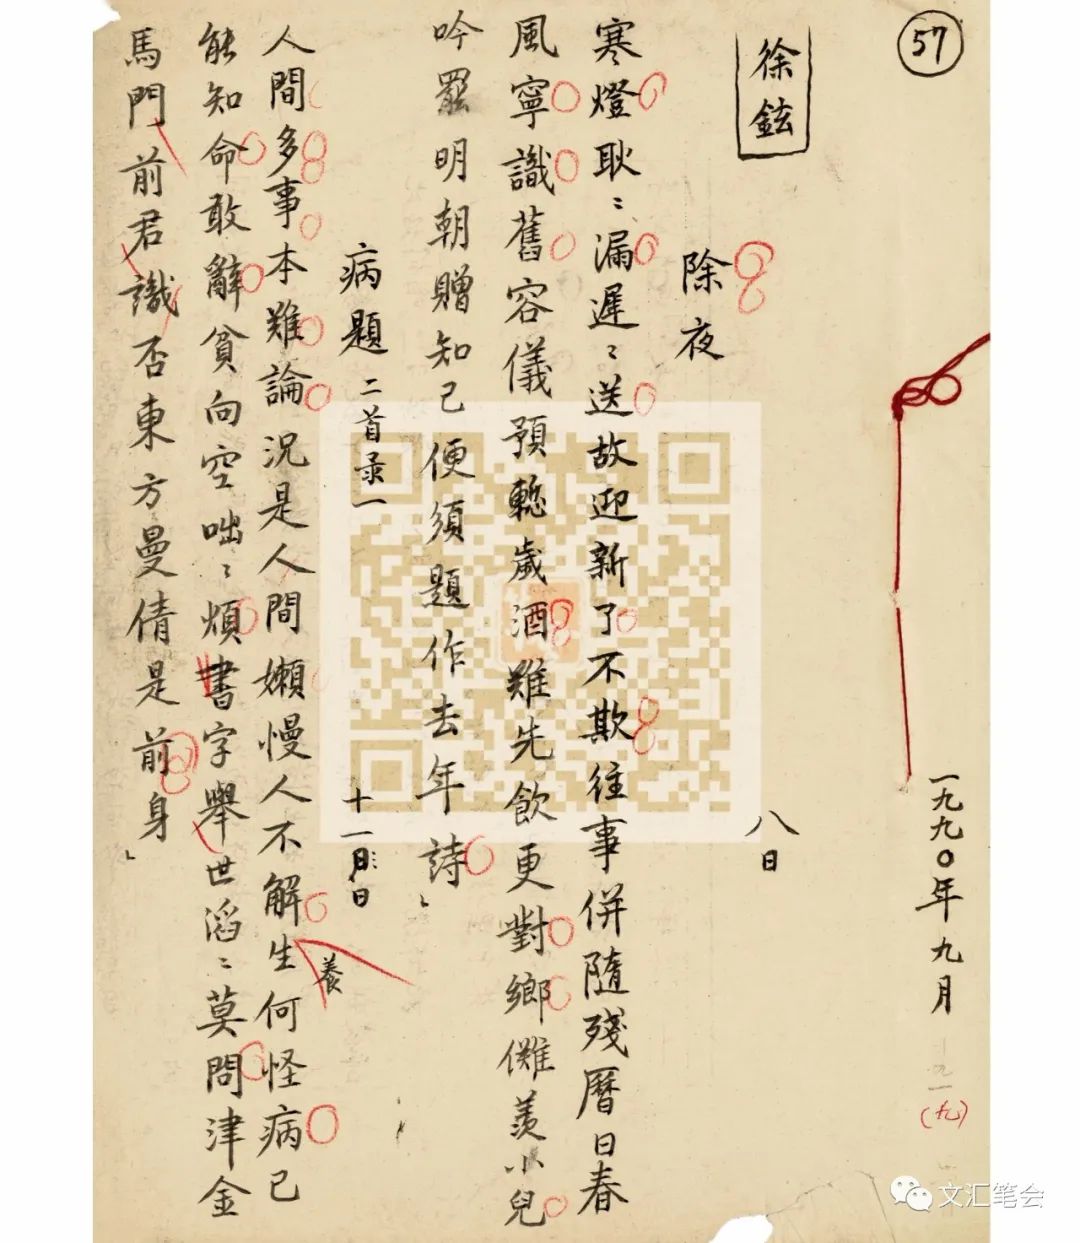 57
一九九〇年九月
(九)
徐鉉
八日
除夜
寒燈耿〻漏遲〻送故迎新了不欺往事併隨殘曆日春
風寧識舊容儀預慙歲酒難先飲更對鄉儺羨小兒
吟罷明朝贈知己便須題作去年詩
病題 二首录一 十一日
人間多事本難論況是人間嬾慢人不解生何怪病已
養
能知命敢辭貧向空咄〻煩書字舉世滔〻莫問津金
馬門前君識否東方曼倩是前身
文汇笔会